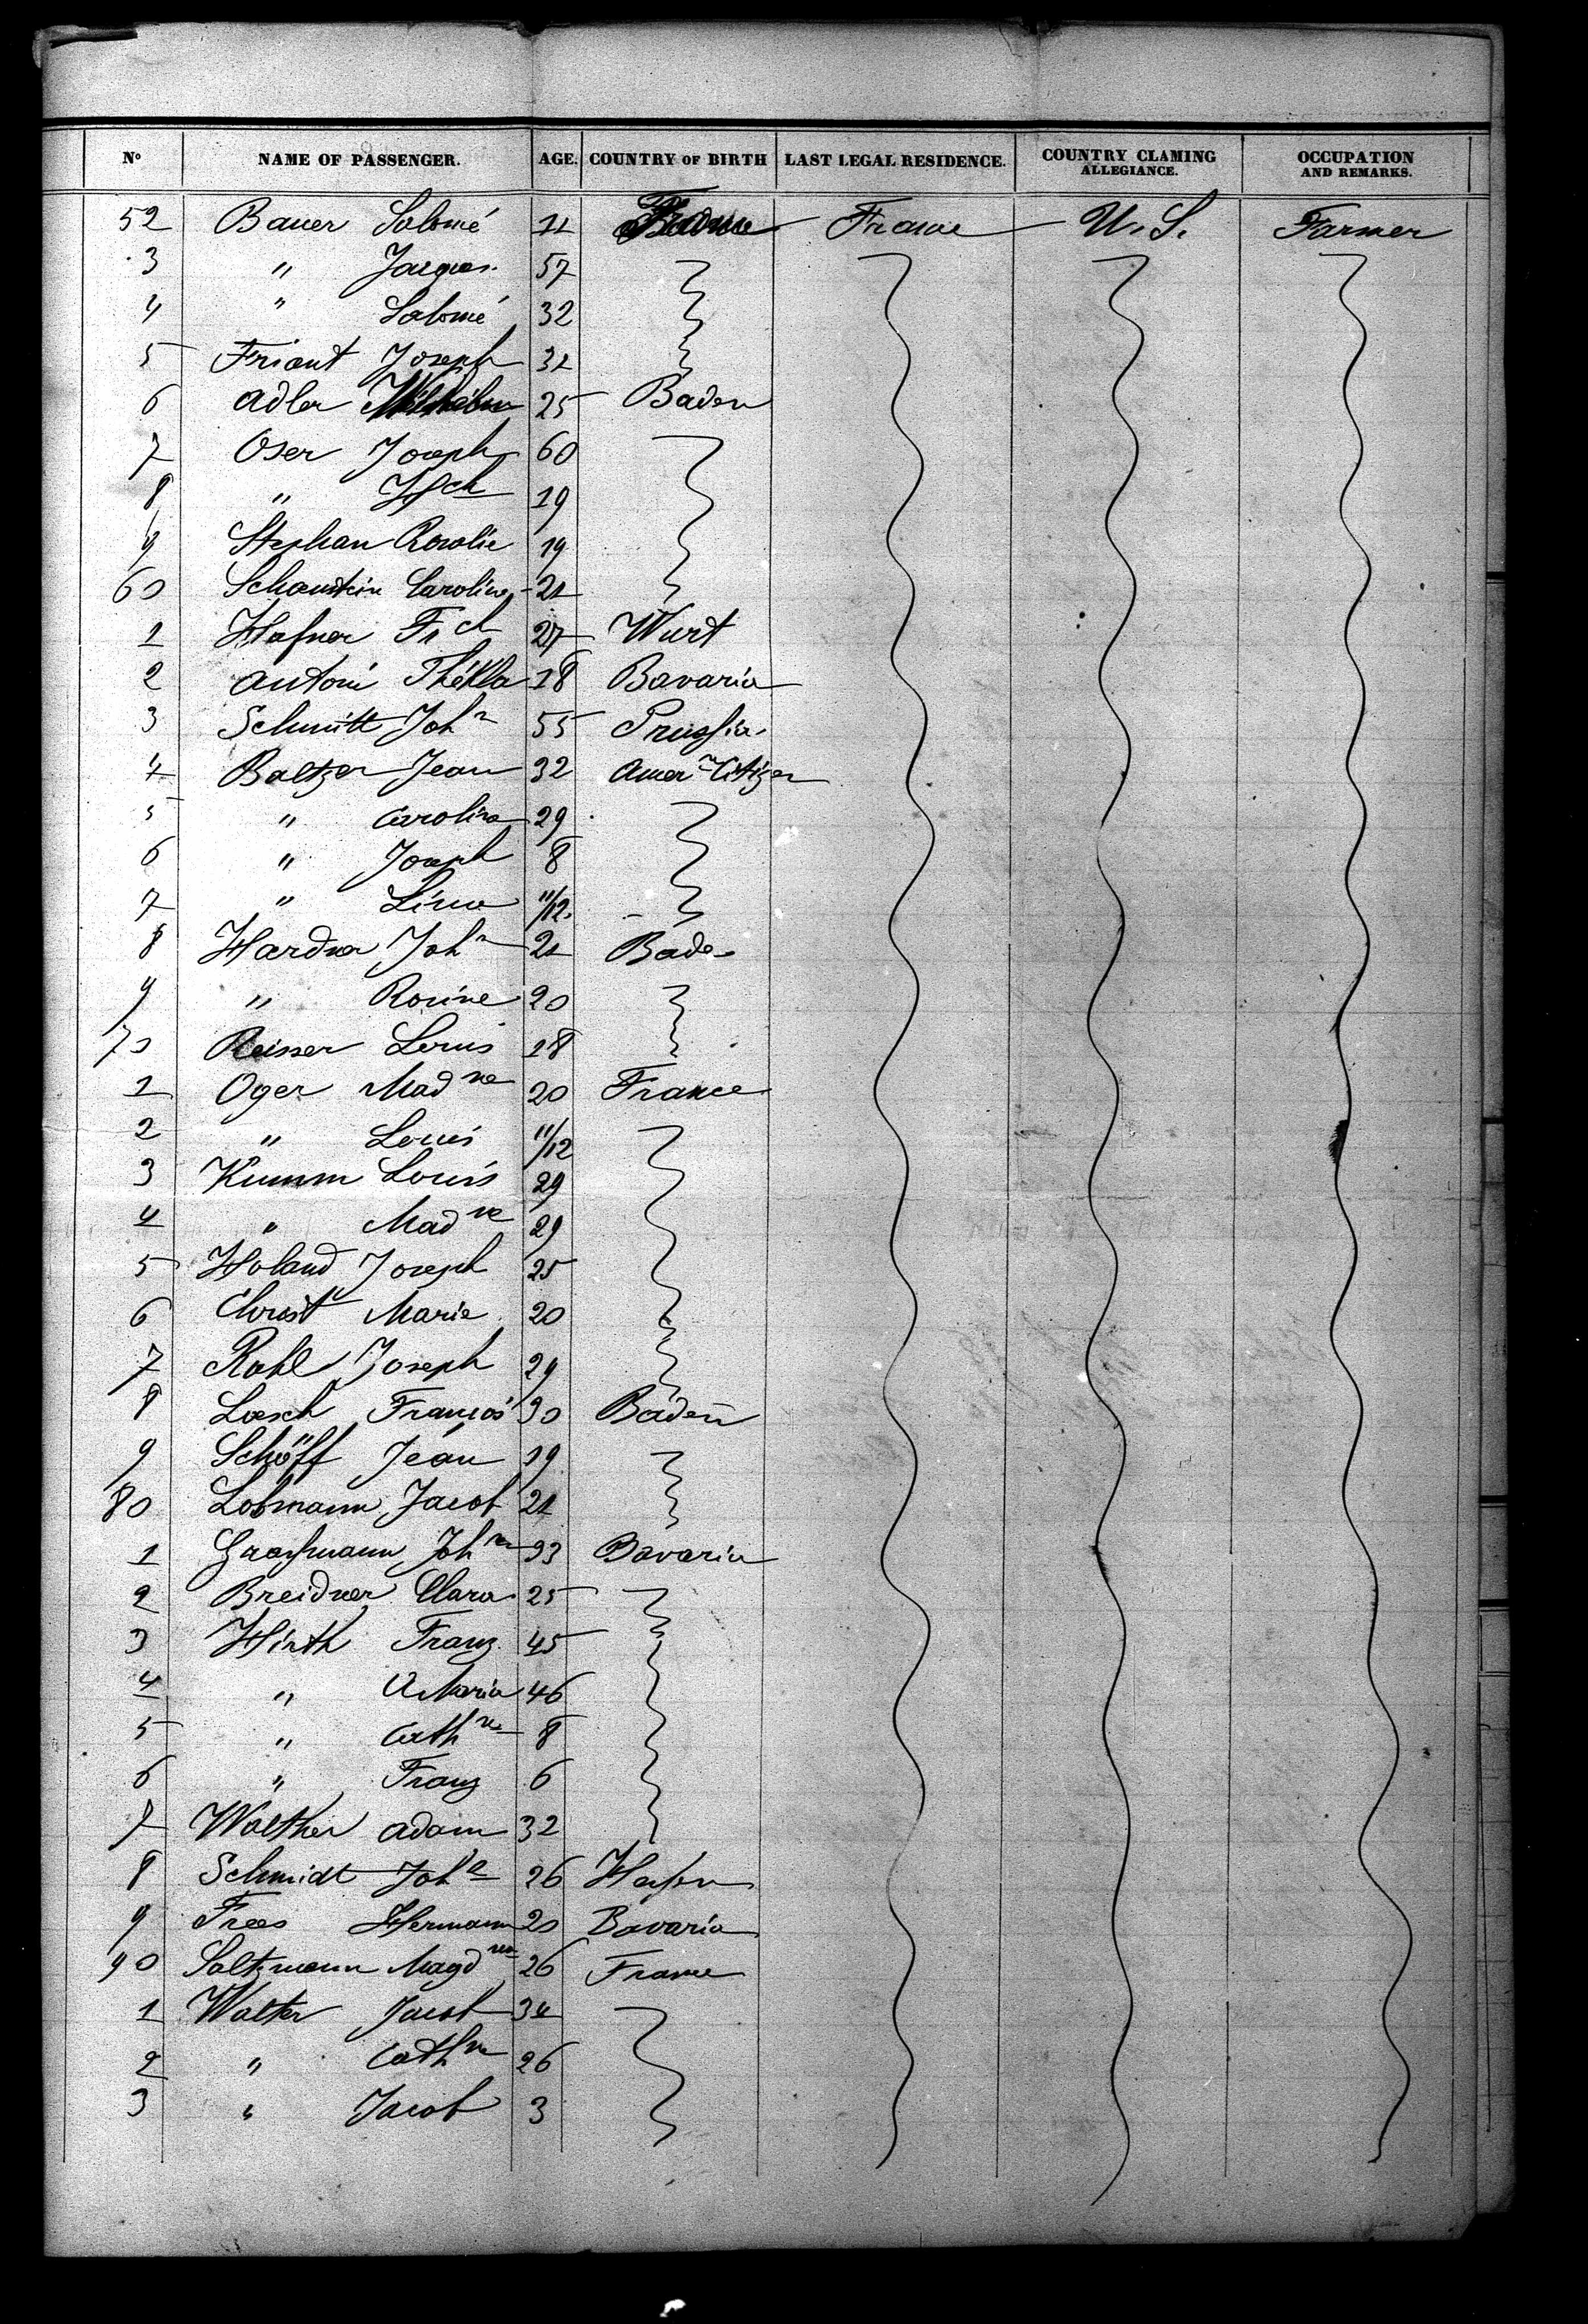 Nº NAME OF PASSENGER. AGE. COUNTRY OF BIRTH LAST LEGAL RESIDENCE. COUNTRY CLAMING ALLEGIANCE. OCCUPATION AND REMARKS.
52 Bauer Salomé 11 France France U.S. Farmer
3 " Jacques 57
4 " Salomé 32
5 Friant Joseph 31
6 Adler Wilhelm 25 Baden
7 Oser Joseph 60
8 " 19
9 Stephan Rosalie 19
60 Schaustein Caroline 21
1 Hafner Frch 27 Wurt
2 Antoni Thékla 18 Bavaria
3 Schmitt John 55 Prussia
4 Baltzer Jean 32 Amern Citizen
5 " Carolina 29
6 " Joseph 8
7 " Lina 11/12
8 John 21 Baden
9 " Rosine 20
70 Reisser Louis 18
1 Oger Madne 20 France
2 " Louis 11/12
3 Kumm Louis 29
4 " Madne 29
5 Holand Joseph 25
6 Christ Marie 20
7 Rohl Joseph 29
8 Loesch François 30 Baden
9 Schöff Jean 19
80 Lobmann Jacob 21
1 Grassmann Johna 33 Bavaria
2 Breidner Clara 25
3 Hirth Franz 45
4 " A Maria 46
5 " Cathne 8
6 " Franz 6
7 Walther Adam 32
8 Schmidt Joha 26 Hessen
9 Frees Hermann 20 Bavaria
90 Saltzmann Magdna 26 France
1 Walter Jacob 34
2 " Cathne 26
3 " Jacob 3